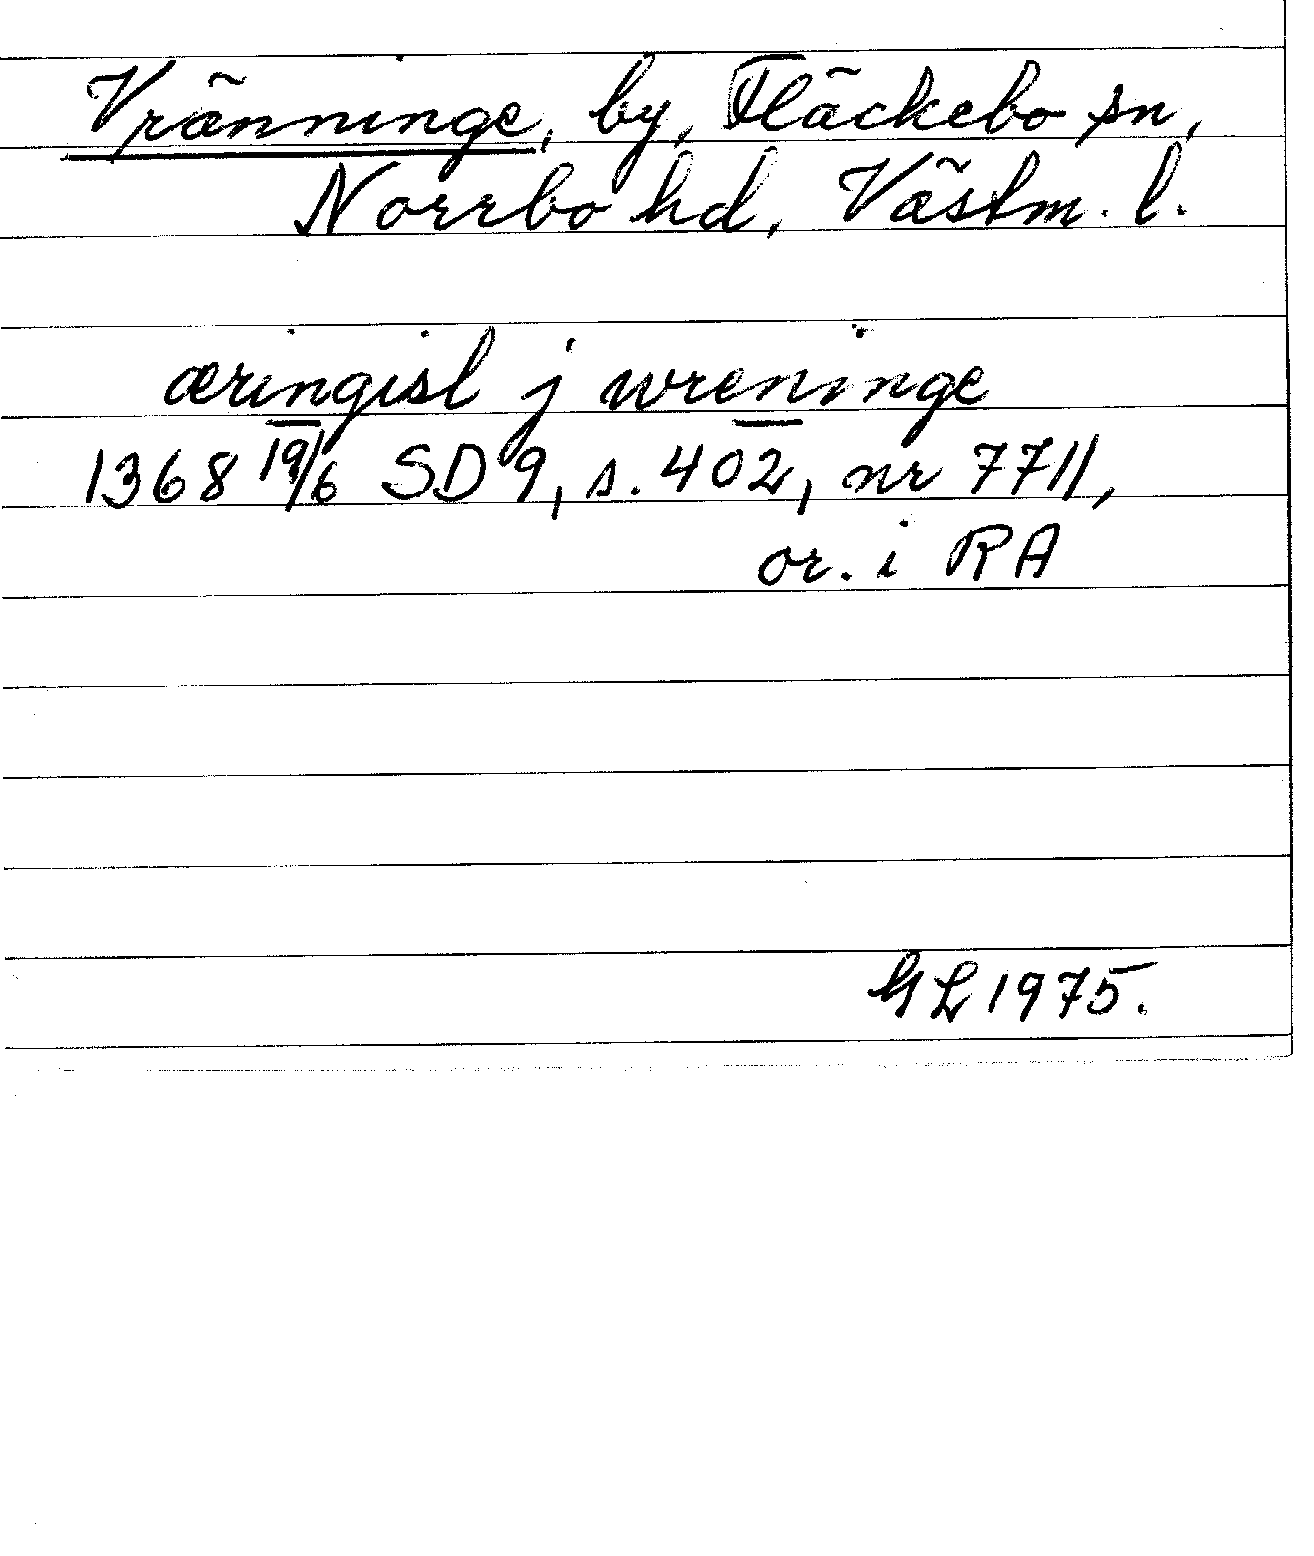 Vränninge, by, Fläckebo sn,
Norrbo hd, Västm. l.
æringisl j wreninge
1368 19/6 SD 9, s. 402, nr 7711,
or. i RA
GL 1975.